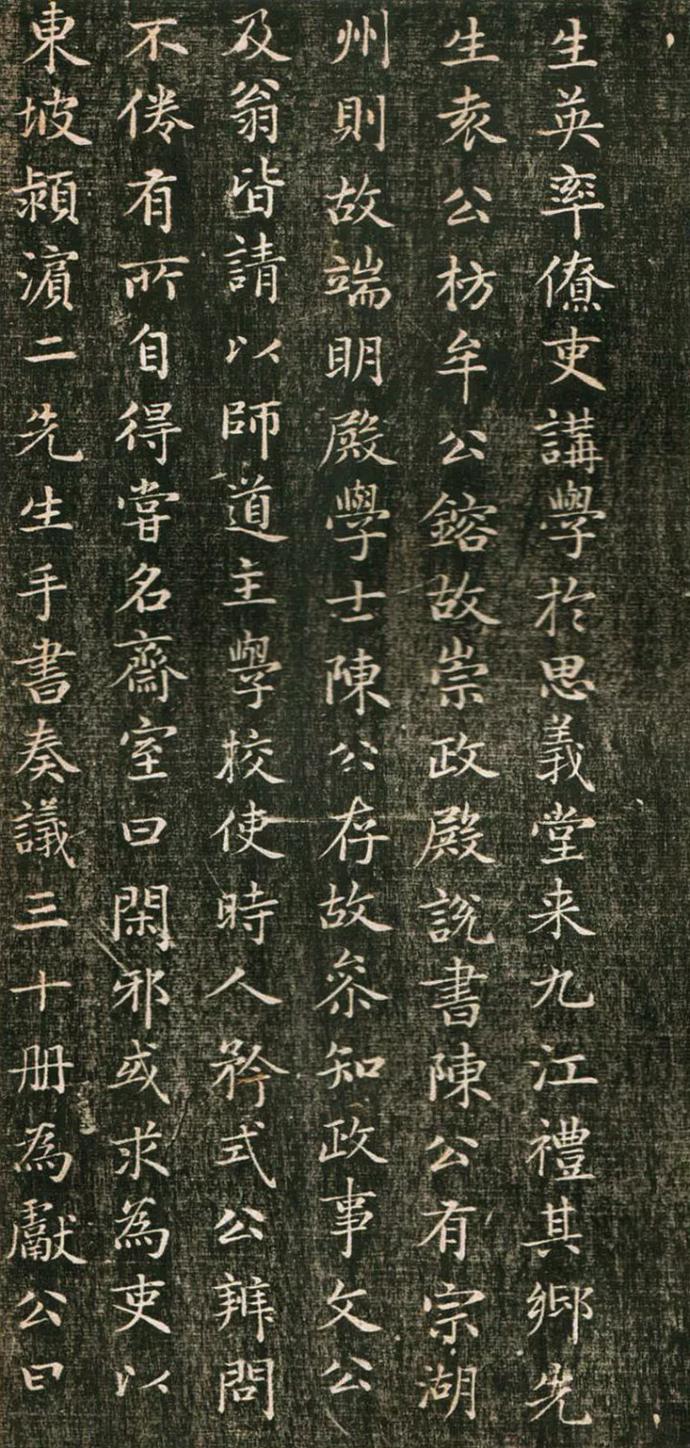 生英率僚吏講學於思義堂来九江禮其鄉先
生袁公枋牟公鎔故崇政殿說書陳公有宗湖
州則故端明殿學士陳公存故叅知政事文公
及翁皆請以師道主學校使時人矜式公辨問
不倦有所自得嘗名齋室曰閑邪或求為吏以
東坡潁濵二先生手書奏議三十册為獻公曰